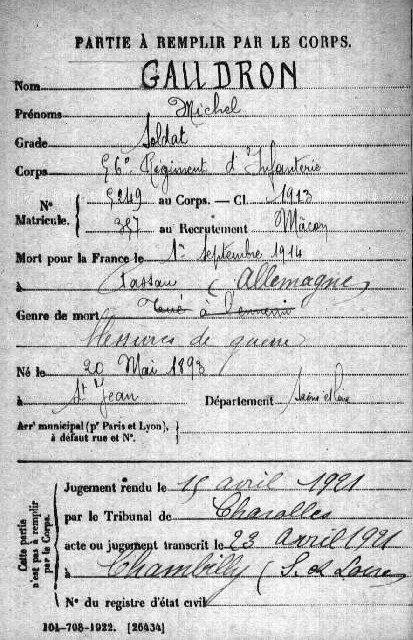 PARTIE À REMPLIR PAR LE CORPS.
Nom GAUDRON
Prénoms Michel
Grade Soldat
Corps 56e Régiment d'Infanterie
N° Matricule. { 5249 au Corps. — Cl. 1913
357 au Recrutement Mâcon
Mort pour la France le 1er Septembre 1914
à Passau (Allemagne)
Genre de mort Tué à l'ennemi
blessures de guerre
Né le 20 Mai 1893
à St Jean Département Saône et Loire
Arr' municipal (pr Paris et Lyon), à défaut rue et N°. {
Cette partie n'est pas à remplir par le Corps. {
Jugement rendu le 15 avril 1921
par le Tribunal de Charolles
acte ou jugement transcrit le 23 avril 1921
à Chambilly (S. et Loire)
N° du registre d'état civil
101-708-1922. [26434]